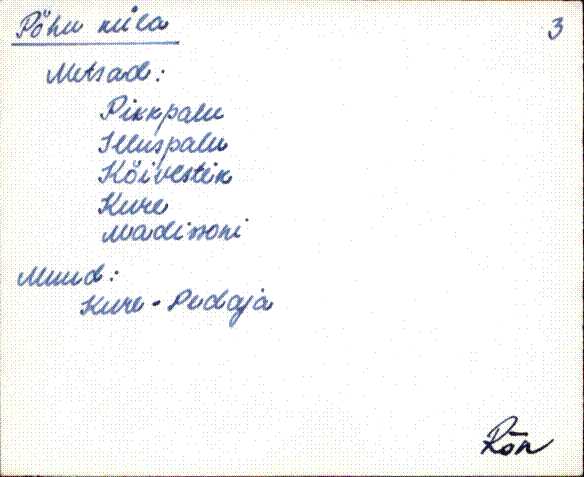 Põhu küla
3
Metsad:
Pikkpalu
Illuspalu
Kõivestik
Kure
Madissoni
Muud:
Kure-Pedaja
Rõn